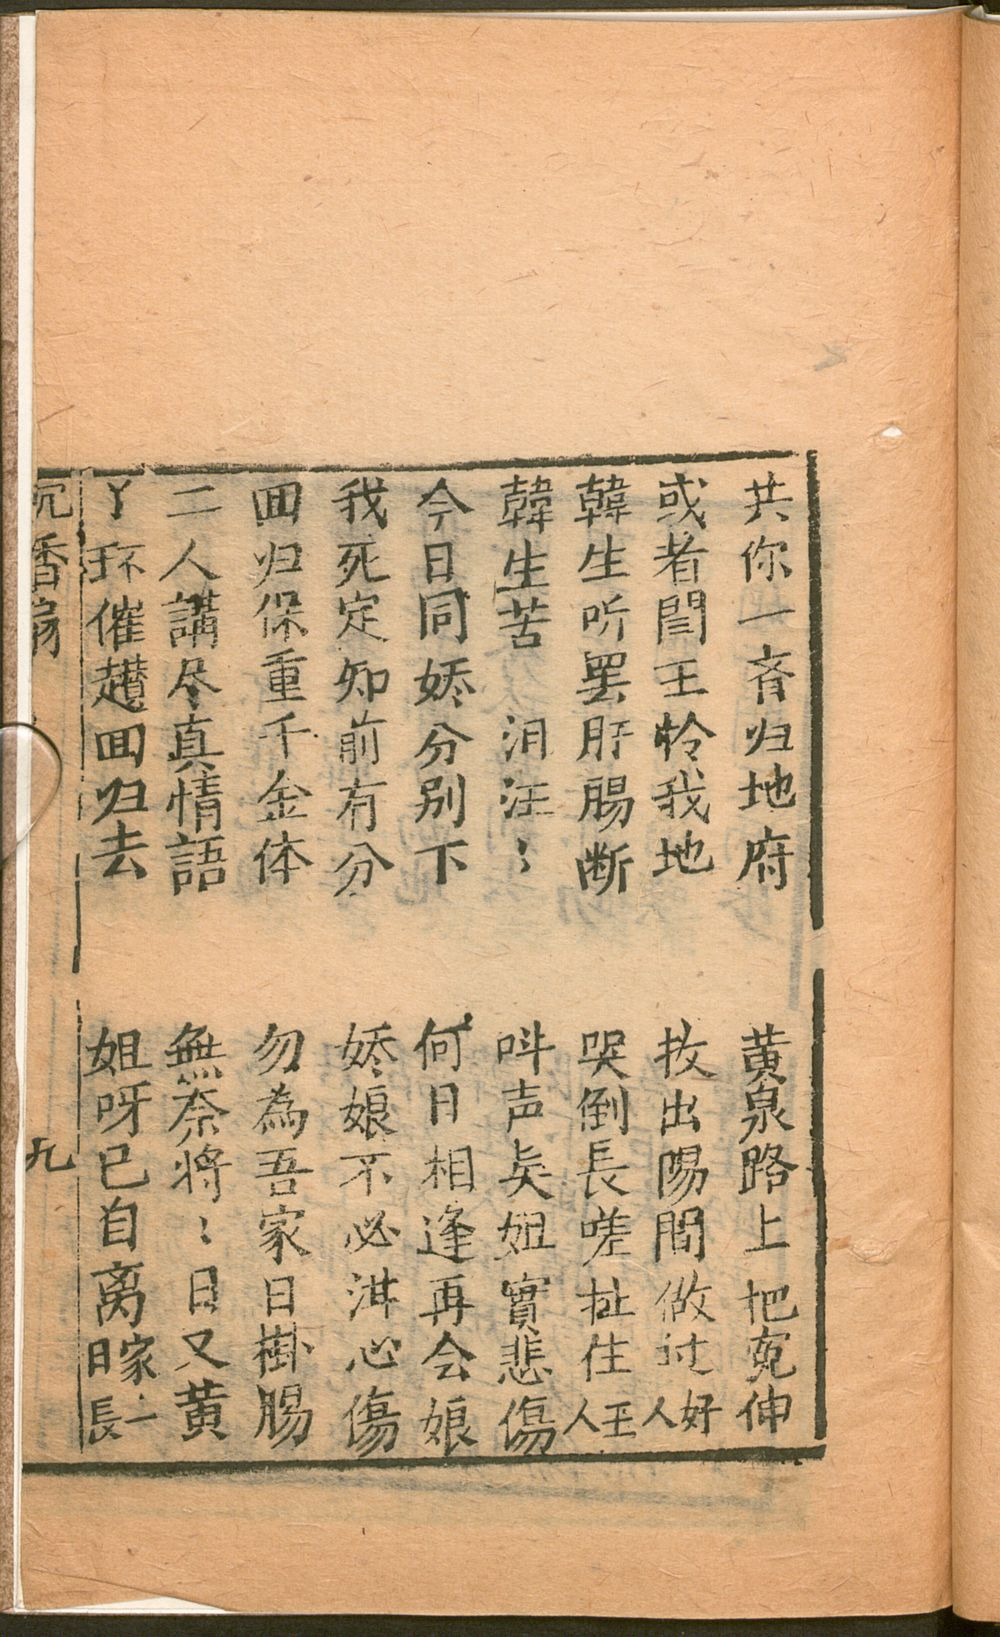 共你一斉归地府　黄泉路上把冤伸
或者閻王怜我地　放出陽間做过好人
韓生听罢肝腸断　哭倒長嗟扯住玉人
韓生苦　泪汪〻　呌声矣姐實悲傷
今日同娇分别下　何日相逢再会娘
我死定知前有分　娇娘不必淚心傷
囬归保重千金体　勿為吾家日掛腸
二人講尽真情語　無奈将〻日又黄
丫环催趲囬归去　姐呀已自离家一日長
沉香扇　九